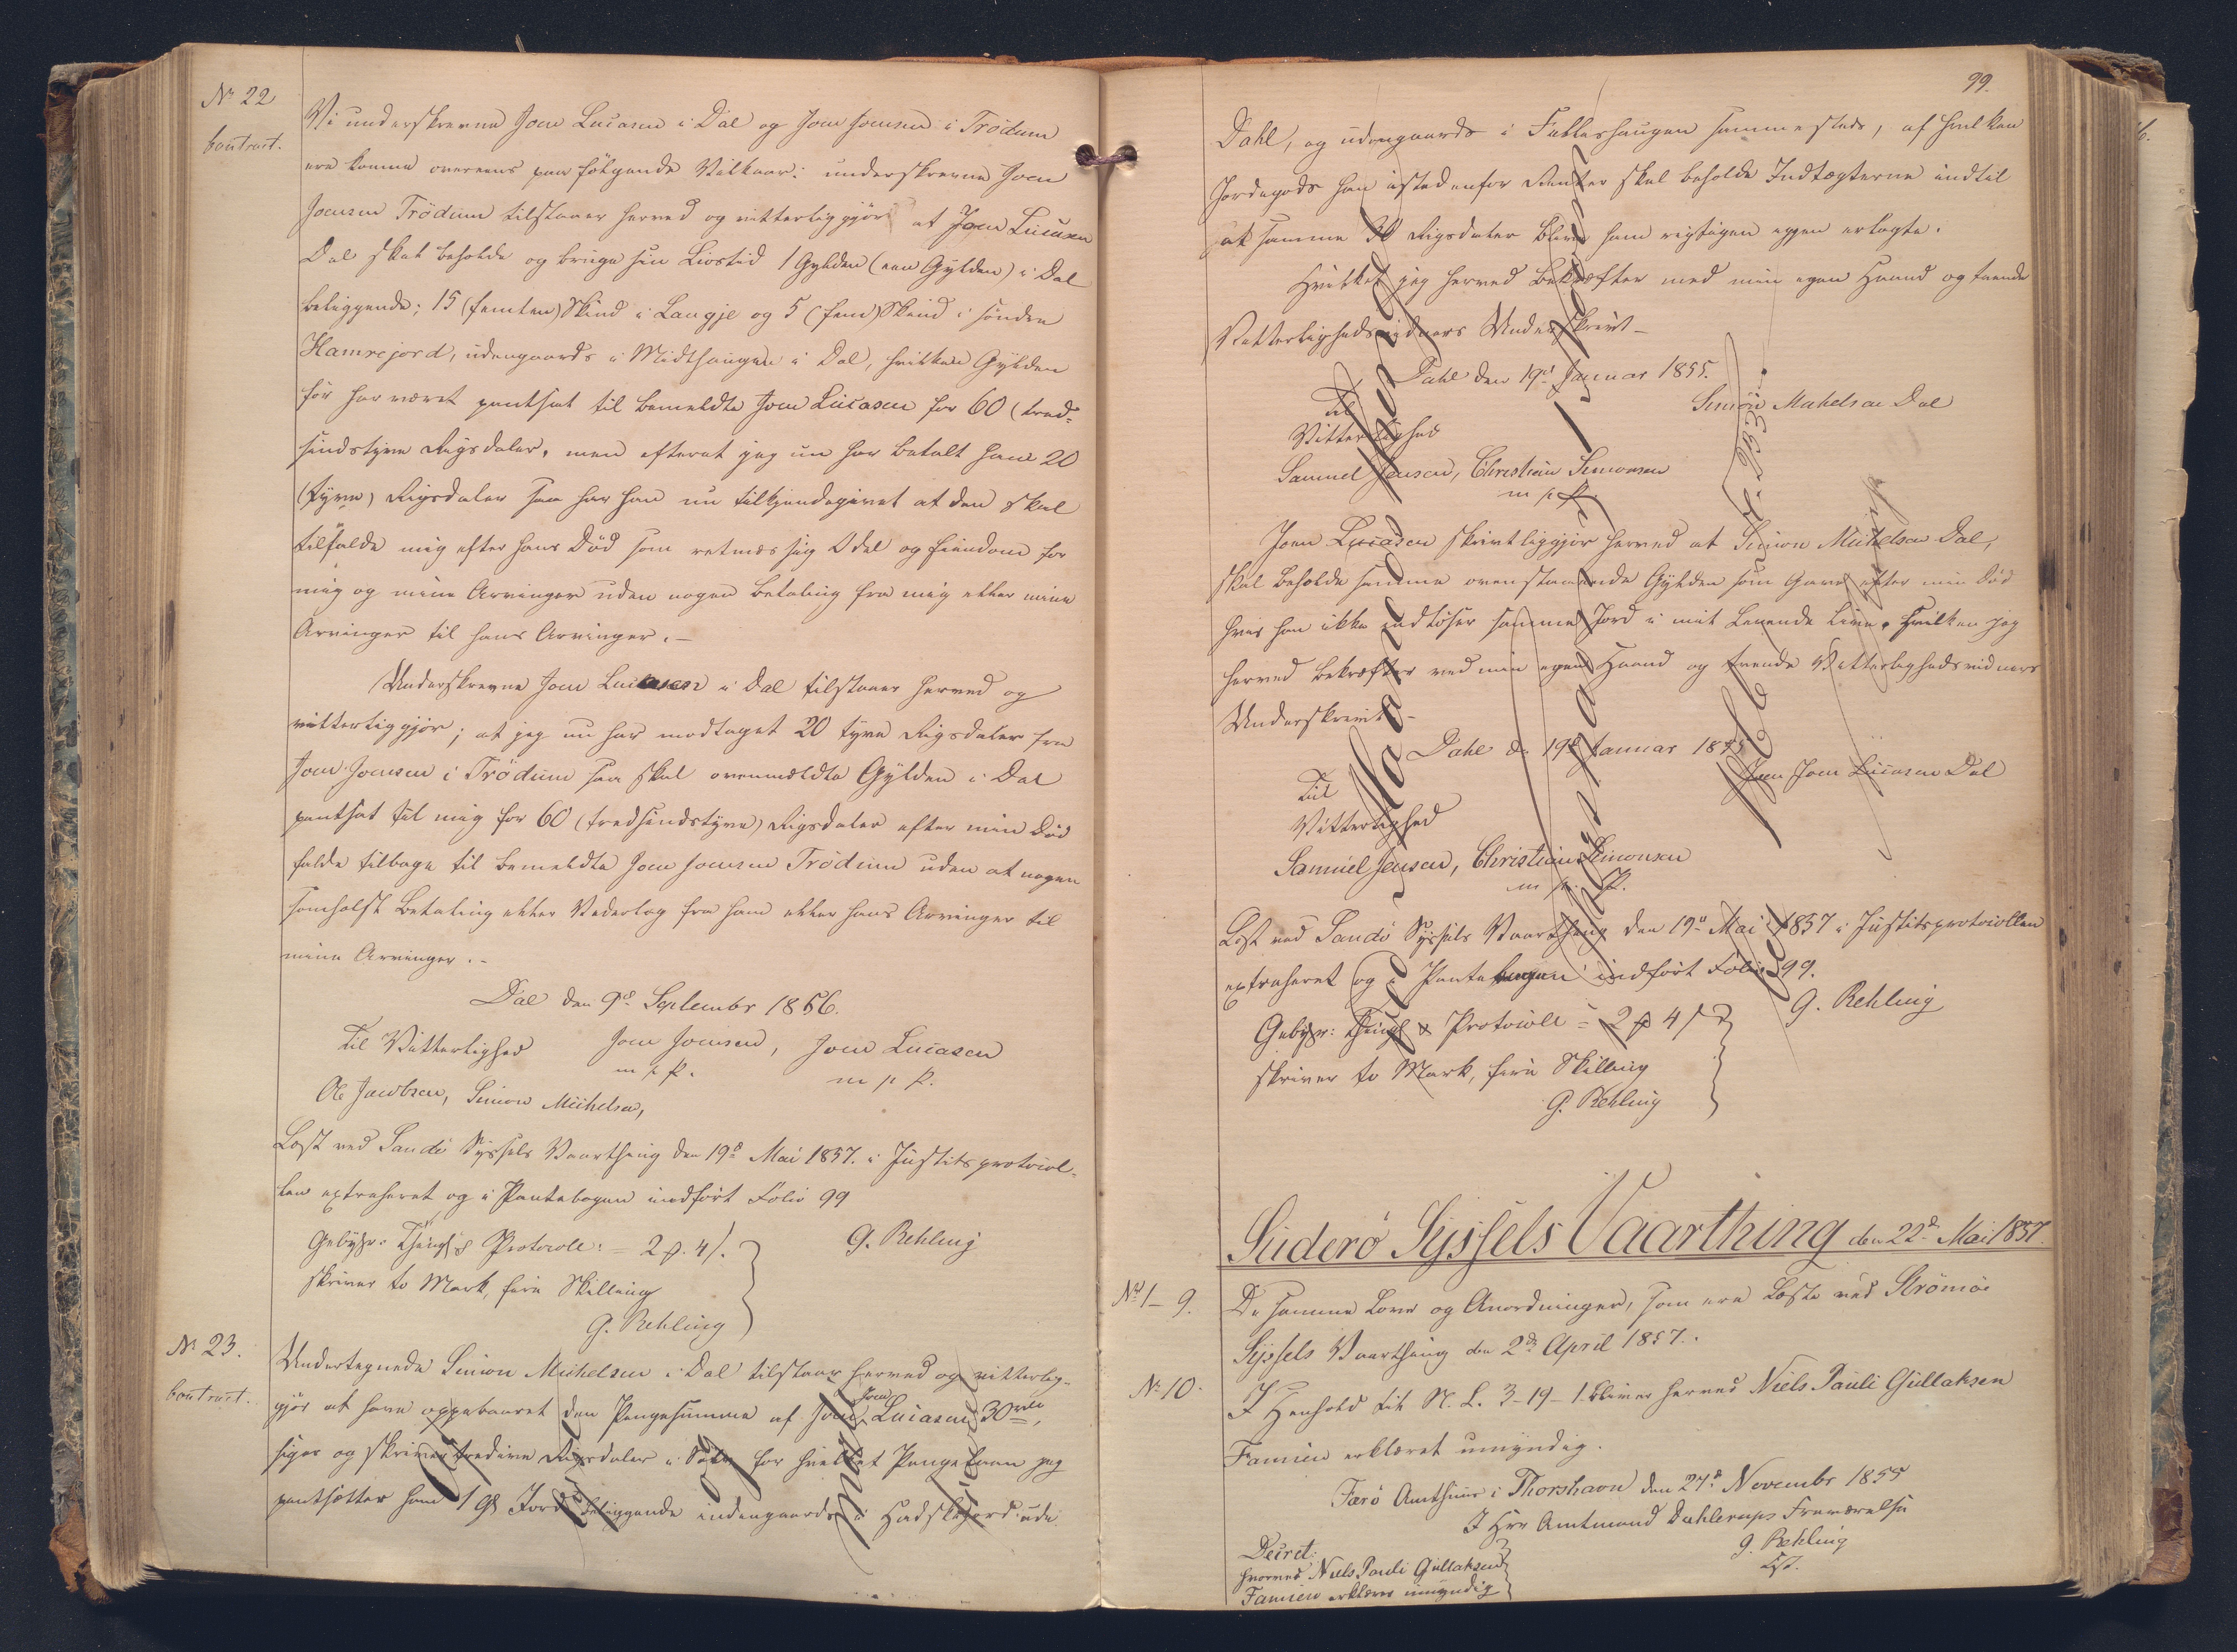 No 22
Contract.
Vi underskrevne Joen Lucasen i Dal og Joen Joensen i Trödum
ere komne overeens paa fölgende Vilkaar: underskrevne Joen
Joensen Trödum tilstaaer herved og vitterliggjör at Joen Lucasen
Dal skal beholde og bruge sin Livstid 1 Gylden (een Gylden) i Dal
beliggende; 15 (femten) Skind i Laugje og 5 (fem) Skind i sönden
Hamrejord, udengaards i Midthaugen i Dal, hvilken Gylden
för har været pantsat til bemeldte Joen Lucasen for 60 (tred-
sindstyve Rigsdaler, men efterat jeg nu har betalt ham 20
(tyve) Rigsdaler saa har han nu tilkjendegivet at den skal
tilfalde mig efter hans Död som retmæssig Odel og Eiendom for
mig og mine Arvinger uden nogen Betaling fra mig eller mine
Arvinger til hans Arvinger.-
Underskrevne Joen Lucasen i Dal tilstaaer herved og
vitterliggjör; at jeg nu har modtaget 20 tyve Rigsdaler fra
Joen Joensen i Trödum saa skal ovenmeldte Gylden i Dal
pantsat til mig for 60 (tredsindstyve) Rigsdaler efter min Död
falde tilbage til bemeldte Joen Joensen Trödum uden at nogen
somhelst Betaling eller Vederlag fra ham eller hans Arvinger til
mine Arvinger.-
Dal den 9de September 1856.
Til Vitterlighed Joen Joensen, Joen Lucasen
m. p. P. m. p. P.
Ole Jacobsen, Simon Michelsen,
Læst ved Sandö Syssels Vaarthing den 19de Mai 1857. i Justitsprotocol-
len extraheret og i Pantebogen indfört Folio 99
Gebyhr: Thingl. & Protocoll: = 2 β. 4 /. G. Rehling
skriver to Mark, fire Skilling
G. Rehling
No 23.
Contract.
Undertegnede Simon Michelsen i Dal tilstaar herved og vitterlig-
gjör at have oppebaaret den Pengesumma af Joen Joen Lucasen 30 rdl,
siger og skriver tredive Rigsdaler i Sölv for hvilket Pengelaan jeg
pantsætter ham 1 Gl Jord beliggende indengaards i Hudskejord ude
99.
Dahl, og udengaards i Fatteshaugen sammesteds, af hvilken
Jordegods han istedenfor Renter skal beholde Indtægterne indtil
at samme 30 Rigsdaler bliver ham rigtigen igjen erlagte.
Hvilket jeg herved bekræfter med min egen Haand og tvende
Vitterlighedsvidners Underskrivt -
Dahl den 19de Januar 1855.
Til
Vitterlighed
Simon Michelsen Dal
Samuel Jensen, Christian Simonsen
m. p. P.
Joen Lucasen skrivtliggjör herved at Simon Michelsen Dal,
skal beholde samme ovenstaaende Gylden som Gave efter min Död
hvis han ikke indlöser samme Jord i mit Levende Live. Hvilken jeg
herved bekræfter ved min egen Haand og tvende Vitterlighedsvidners
Underskrivt -
Dahl d. 19de Januar 1855
Joen Joen Lucasen Dal
Til
Vitterlighed
Samuel Jensen, Christian Simonsen
m. p. P.
Læst ved Sandö Syssels Vaarthing den 19de Mai 1857 i Justitsprotocollen
extraheret og i Pantebogen indfört Folio 99.
G. Rehling
Gebyhr: Thingl. & Protocoll = 2 β 4 /
skriver to Mark, fire Skilling
G. Rehling
Suderö Syssels Vaarthing den 22de Mai 1857.
No 1-9. De samme Love og Anordninger, som ere læste ved Strömöe
Syssels Vaarthing den 2de April 1857.
No 10. I Henhold til N. L. 3-19-1 bliver herved Niels Pauli Gullaksen
Famien erklæret umyndig.
Færö Amthuus i Thorshavn den 27de November 1855
I Hrr Amtmand Dahlerups Fraværelse
G. Rehling
Cst.
Decret:
hvorved Niels Pauli Gullaksen
Famien erklæres umyndig